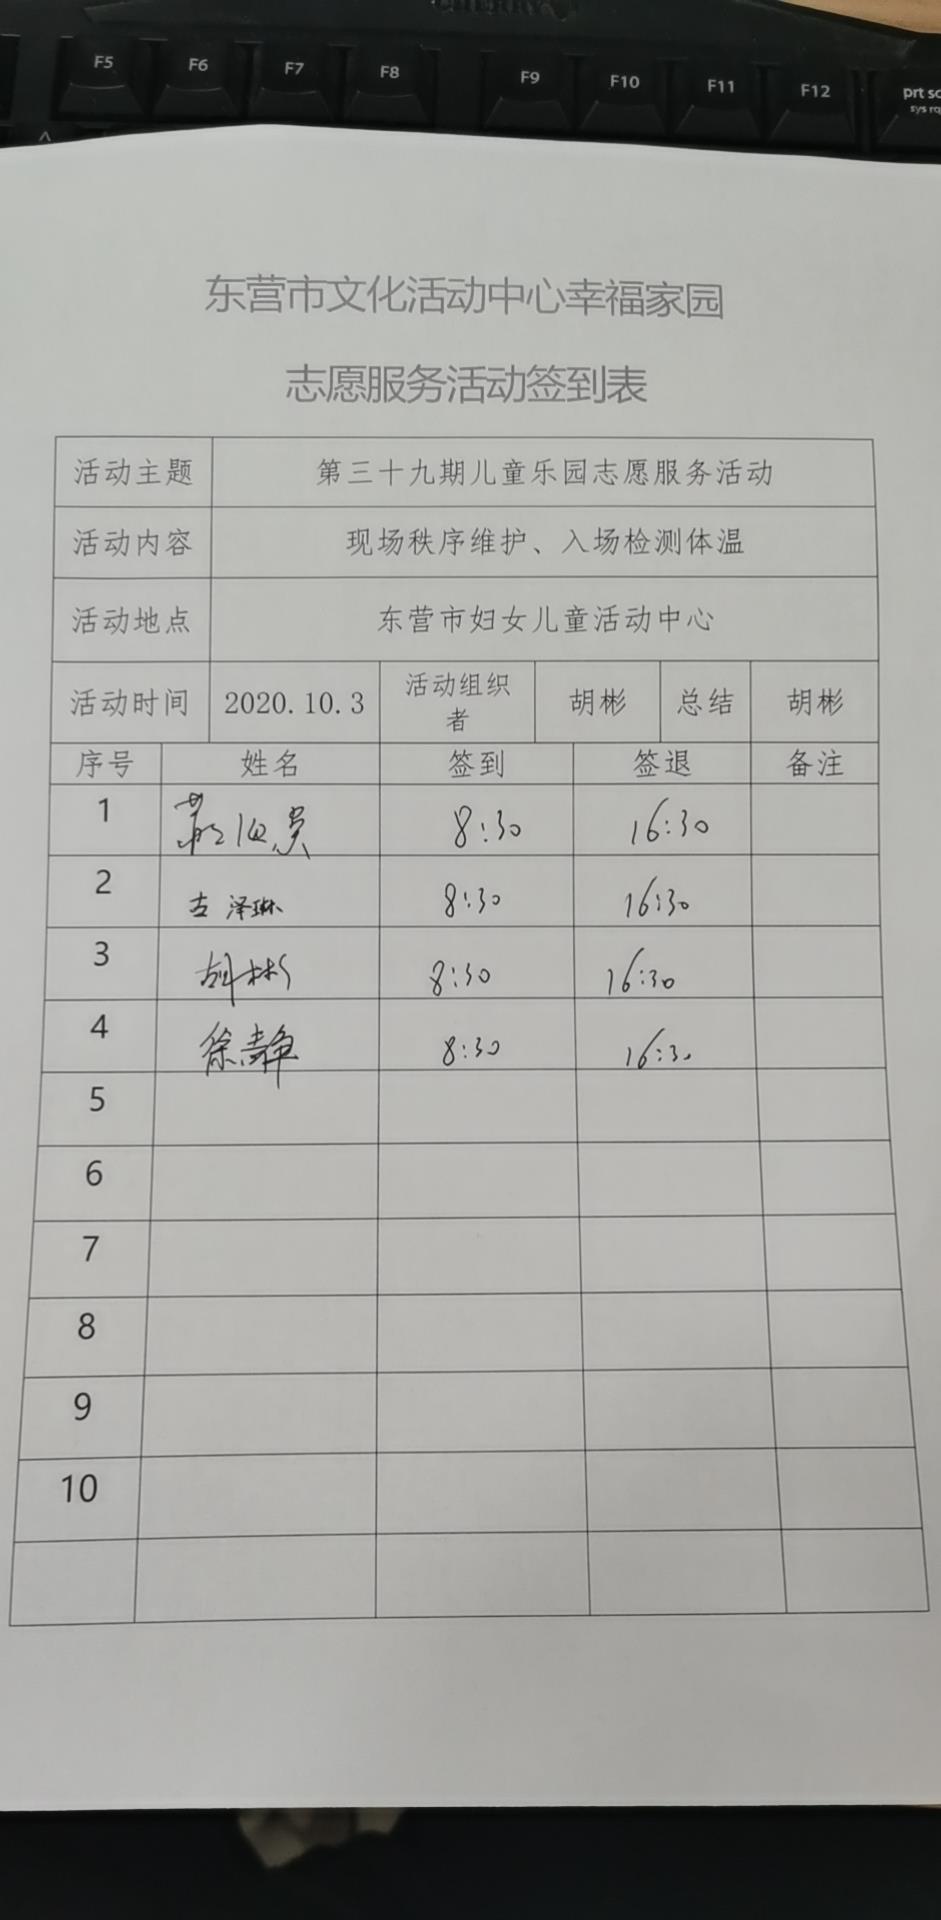 CHERRY
F5 F6 F7 F8 F9 F10 F11 F12 prt sc
sys rq
东营市文化活动中心幸福家园
志愿服务活动签到表
活动主题 第三十九期儿童乐园志愿服务活动
活动内容 现场秩序维护、入场检测体温
活动地点 东营市妇女儿童活动中心
活动时间 2020.10.3 活动组织者 胡彬 总结 胡彬
序号 姓名 签到 签退 备注
1 8:30 16:30
2 古泽琳 8:30 16:30
3 胡彬 8:30 16:30
4 徐静 8:30 16:30
5
6
7
8
9
10